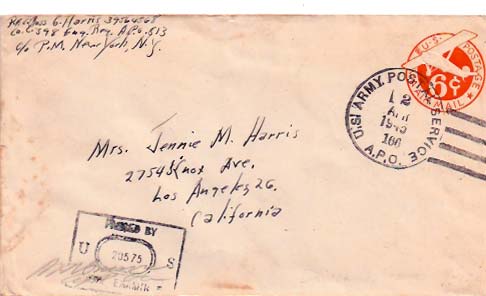 G. Harris 39564568
Co. C 398 Eng. Reg. A.P.O. 513
c/o P.M. New York, N.Y.
U.S. POSTAGE
6¢
AIR MAIL
U.S. ARMY POSTAL SERVICE
12
1945
A.P.O.
Mrs. Jennie M. Harris
Knox Ave.
Los Angeles 26.
California
PASSED BY
U S
20575
ARMY EXAMINER